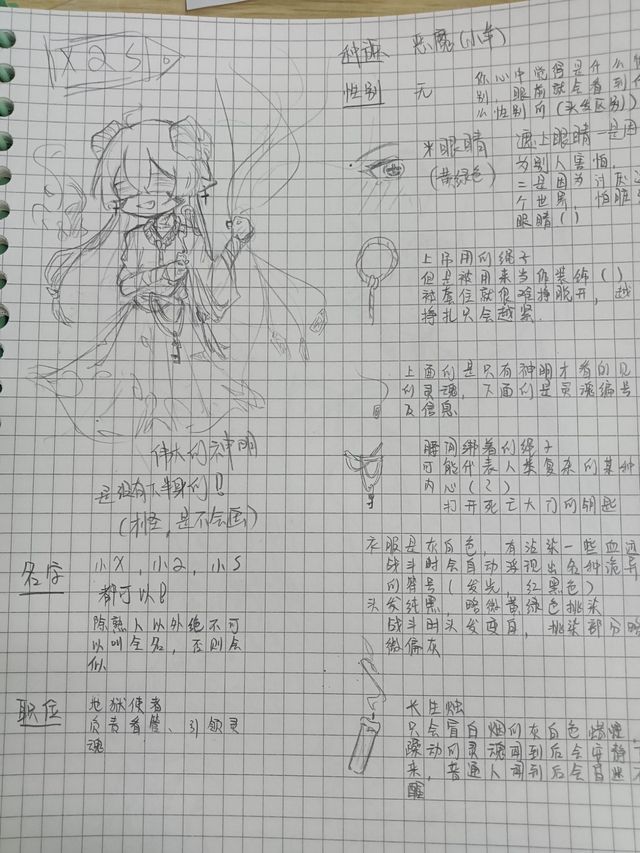 X Q S
种族 恶魔(小羊)
性别 无
你心中觉得是什么性
别 眼前就会看到什
么性别的(头纹区分)
*眼睛
(黄绿色)
遮上眼睛一是因
为别人害怕,
二是因为讨厌这
个世界,怕脏
眼睛()
上吊用的绳子
但是被用来当作装饰()
被套住就很难挣脱开,越
挣扎只会越紧.
上面的是只有神明才看的见
的灵魂,下面的是灵魂编号
及信息.
腰间绑着的绳子
可能代表人类复杂的某种
内心(?)
打开死亡大门的钥匙
伟大的神明
是没有下半身的!
(才怪,是不会画)
名字
小X,小Q,小S
都可以!
除熟人以外绝不可
以叫全名,否则会
似
职位
地狱使者
负责看管、引领灵
魂
衣服是灰白色,有沾染一些血迹
战斗时会自动浮现出各种诡异
的符号(发光,红黑色)
头发纯黑,略微黄绿色挑染
战斗时头发变白,挑染部分略
微偏灰
长生烛
只会冒白烟的灰白色蜡烛,
躁动的灵魂闻到后会安静下
来,普通人闻到后会昏迷不
醒